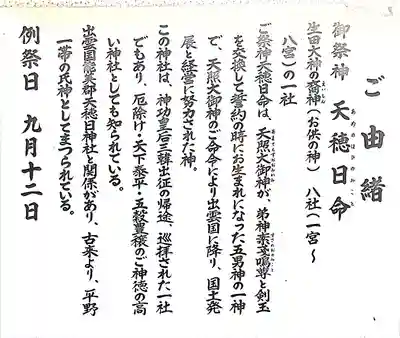 ご由緒
御祭神　天穂日命
あめのほひのみこと
生田大神の裔神（お供の神）　八社（一宮～
八宮）の一社
ご祭神天穂日命は、天照大御神が、弟神素戔嗚尊と剣玉
を交換して誓約の時にお生まれになった五男神の一神
で、天照大御神のご命令により出雲国に降り、国土発
展と経営に努力された神。
この神社は、神功皇后三韓出征の帰途、巡拝された一社
でもあり、厄除け・天下泰平・五穀豊穣のご神徳の高
い神社としても知られている。
出雲国意宇郡天穂日神社と関係があり、古来より、平野
一帯の氏神としてまつられている。
例祭日　九月十二日